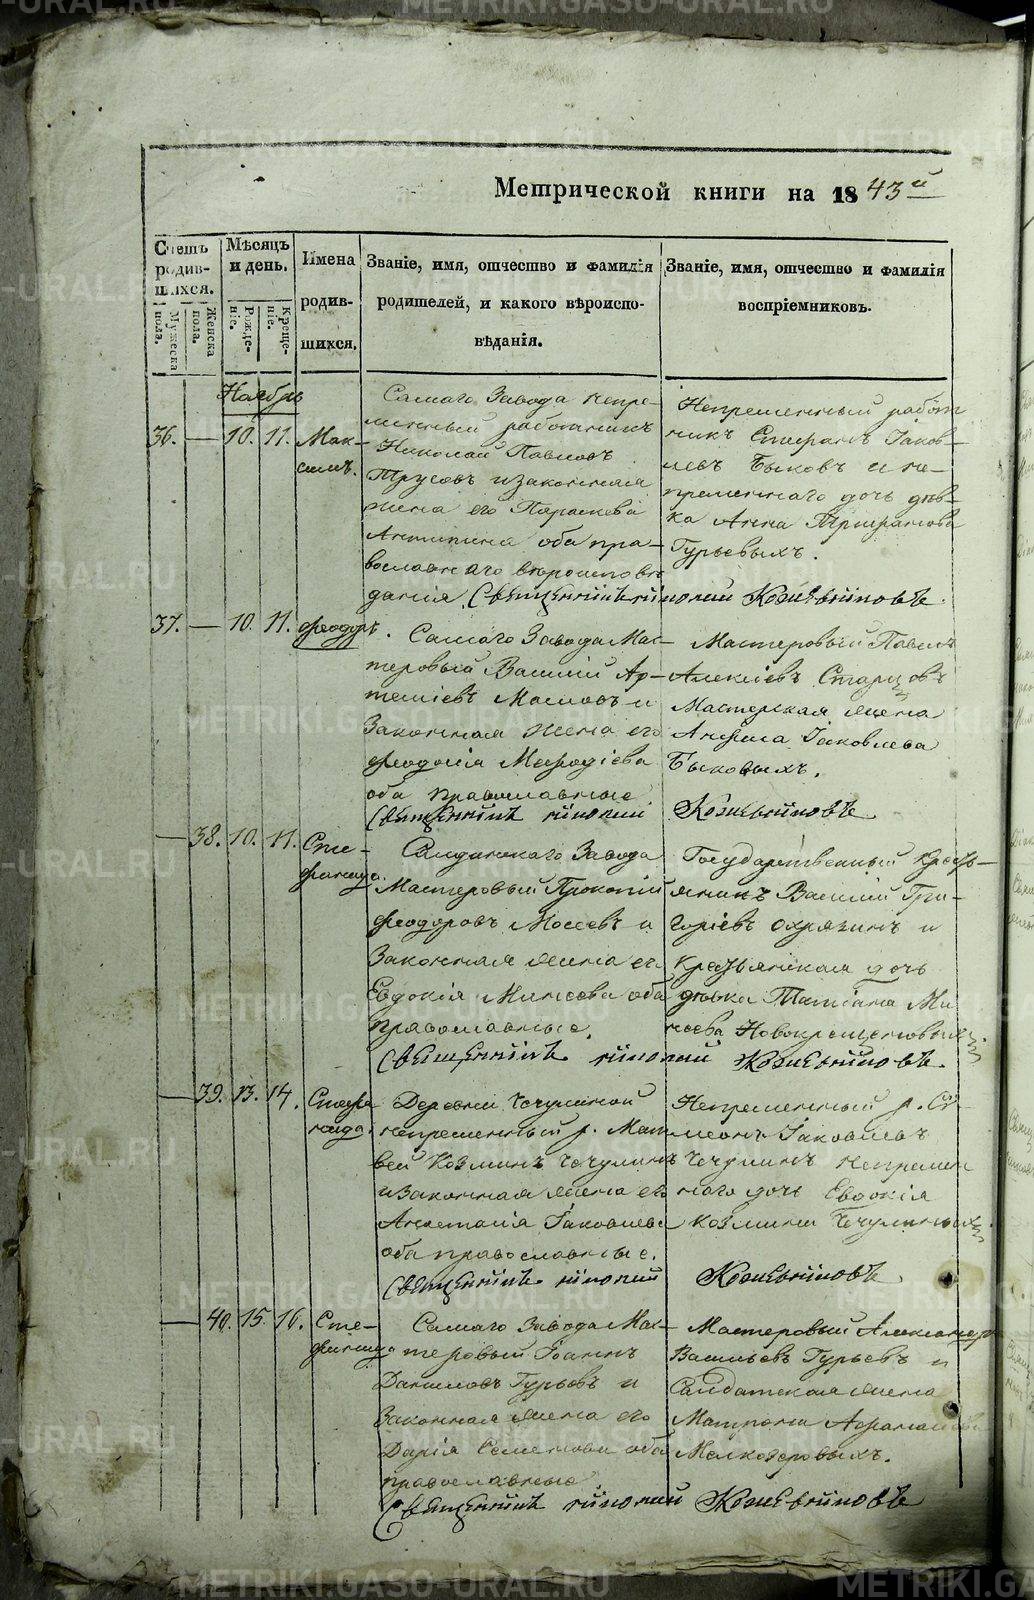 METRIKI.GASO-URAL.RU
Метрической книги на 1843й
Счетъ родив-шихся.
Мужеска пола.
Женска пола.
Мѣсяцъ и день.
Рожде-ніе.
Креще-ніе.
Имена родив-шихся.
Званіе, имя, отчество и фамилія
родителей, и какого вѣроиспо-
вѣданія.
Званіе, имя, отчество и фамилія
воспріемниковъ.
Ноябрь
36. — 10. 11. Мак-
симъ.
Самаго Завода непре-
менный работникъ
Николай Павловъ
Трусовъ и законная
жена его Параскева
Антипина оба пра-
вославнаго вероисповѣ
данія.
Непременный работ
никъ Стефанъ Іаков-
левъ Быковъ и не-
пременнаго дочь дѣв-
ка Анна Трифанова
Гурьевыхъ.
Священникъ Николай Кожевниковъ.
37. — 10. 11. Феодоръ.
Самаго Завода Мас-
теровый Василій Ар-
теміевъ Масловъ и
Законная жена его
Феодосія Мефодіева
оба православные
Мастеровый Павелъ
Алексіевъ Старцовъ
Мастерская жена
Анфиса Іаковлева
Быковыхъ.
Священникъ Николай Кожевниковъ
— 38. 10. 11. Сте-
фанида.
Салдинскаго Завода
Мастеровый Прокопій
Феодоровъ Мосеевъ и
Законная жена его
Евдокія Минеева оба
православные.
Государственный кресть-
янинъ Василій Гри-
горіевъ Охрязинъ и
крестьянская дочь
дѣвка Татіана Ми
неева Новокрещеновыхъ
Священникъ Николай Кожевниковъ.
— 39. 13. 14. Стефа
нида.
Деревни Чечулиной
непременный р. Мат
вей Козминъ Чечулинъ
и законная жена его
Анастасія Іаковлева
оба православные.
Непременный р. Си-
меонъ Іаковлевъ
Чечулинъ непремен
наго дочь Евдокія
Козмина Чечулиныхъ
Священникъ Николай Кожевниковъ
— 40. 15. 16. Сте-
фанида
Самаго Завода Мас-
теровый Іоаннъ
Даниловъ Гурьевъ и
Законная жена его
Дарія Семенова оба
православные
Мастеровый Александръ
Васильевъ Гурьевъ и
Салдатская жена
Матрона Афанасіева
Мелкозеровыхъ.
Священникъ Николай Кожевниковъ